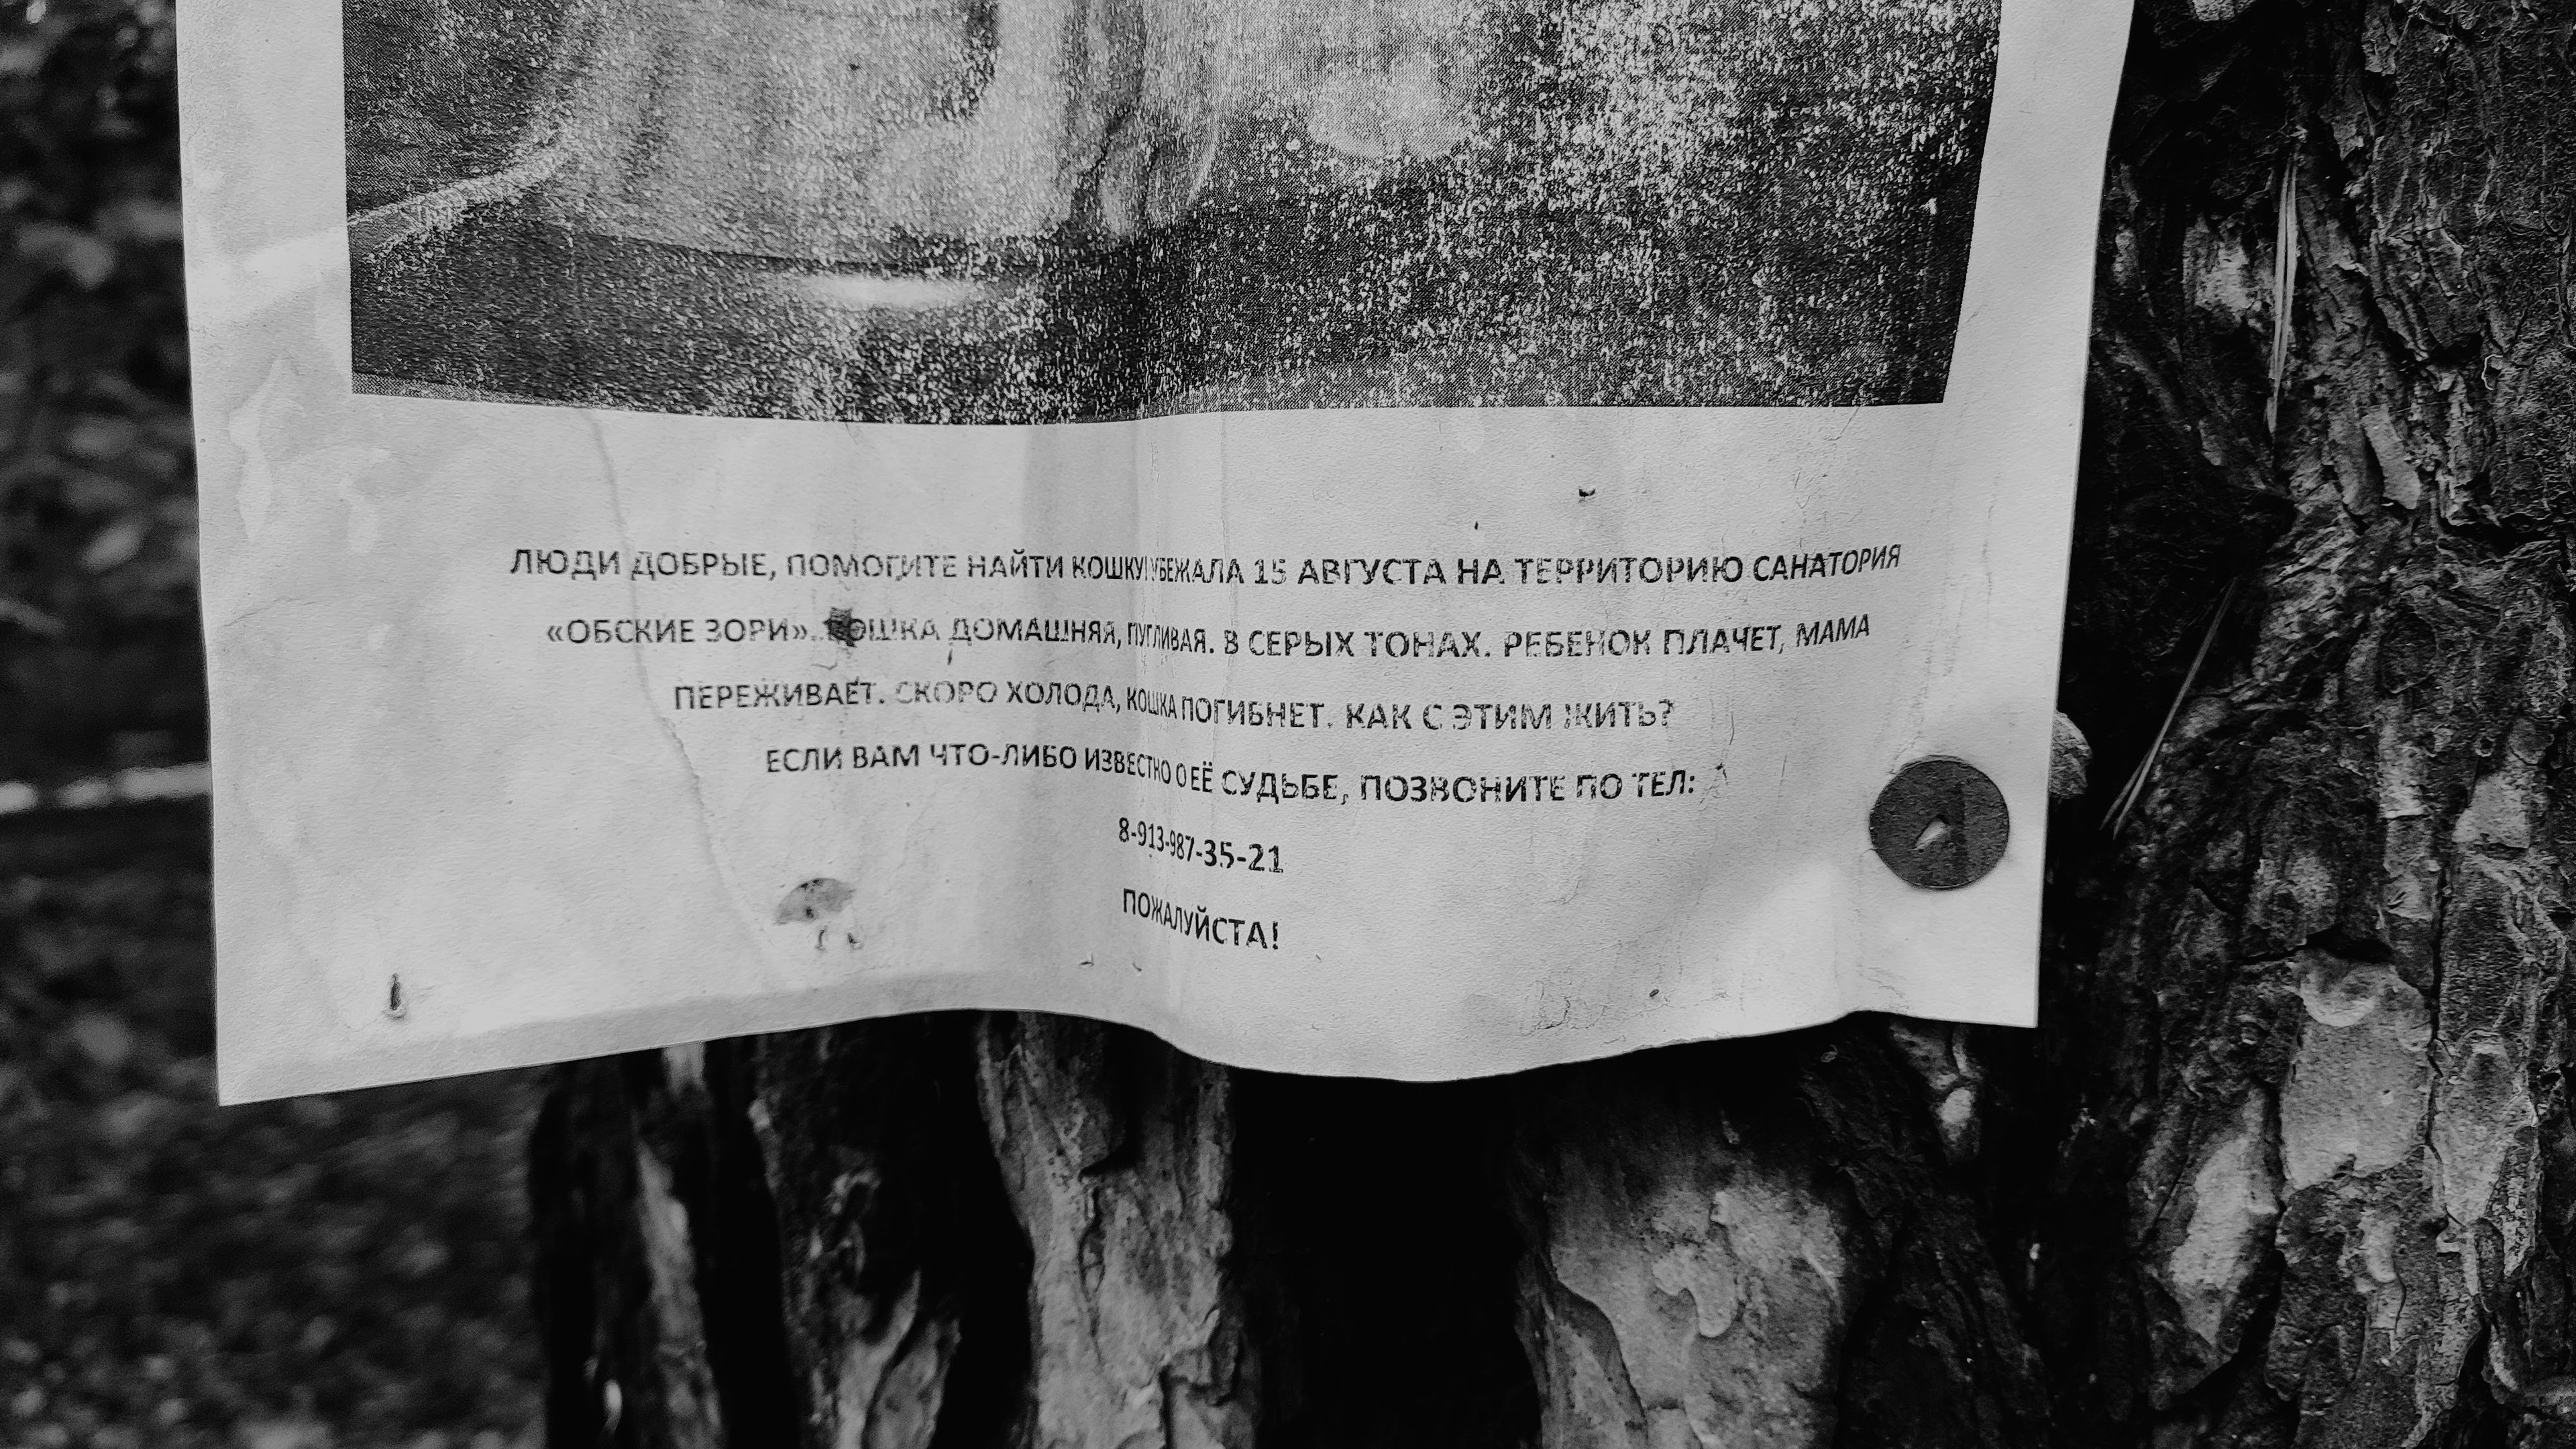 ЛЮДИ ДОБРЫЕ, ПОМОГИТЕ НАЙТИ КОШКУ! УБЕЖАЛА 15 АВГУСТА НА ТЕРРИТОРИЮ САНАТОРИЯ
«ОБСКИЕ ЗОРИ». КОШКА ДОМАШНЯЯ, ПУГЛИВАЯ. В СЕРЫХ ТОНАХ. РЕБЕНОК ПЛАЧЕТ, МАМА
ПЕРЕЖИВАЕТ. СКОРО ХОЛОДА, КОШКА ПОГИБНЕТ. КАК С ЭТИМ ЖИТЬ?
ЕСЛИ ВАМ ЧТО-ЛИБО ИЗВЕСТНО О ЕЁ СУДЬБЕ, ПОЗВОНИТЕ ПО ТЕЛ:
8-913-987-35-21
ПОЖАЛУЙСТА!